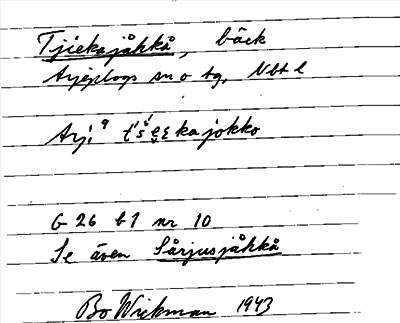 Tjiekajåkkå, bäck
Arjeplogs sn o tg, Nbt l
Arj. t'š́ẹεkajokko
G 26 b 1 nr 10
Se även Sårjusjåkkå
Bo Wickman 1943